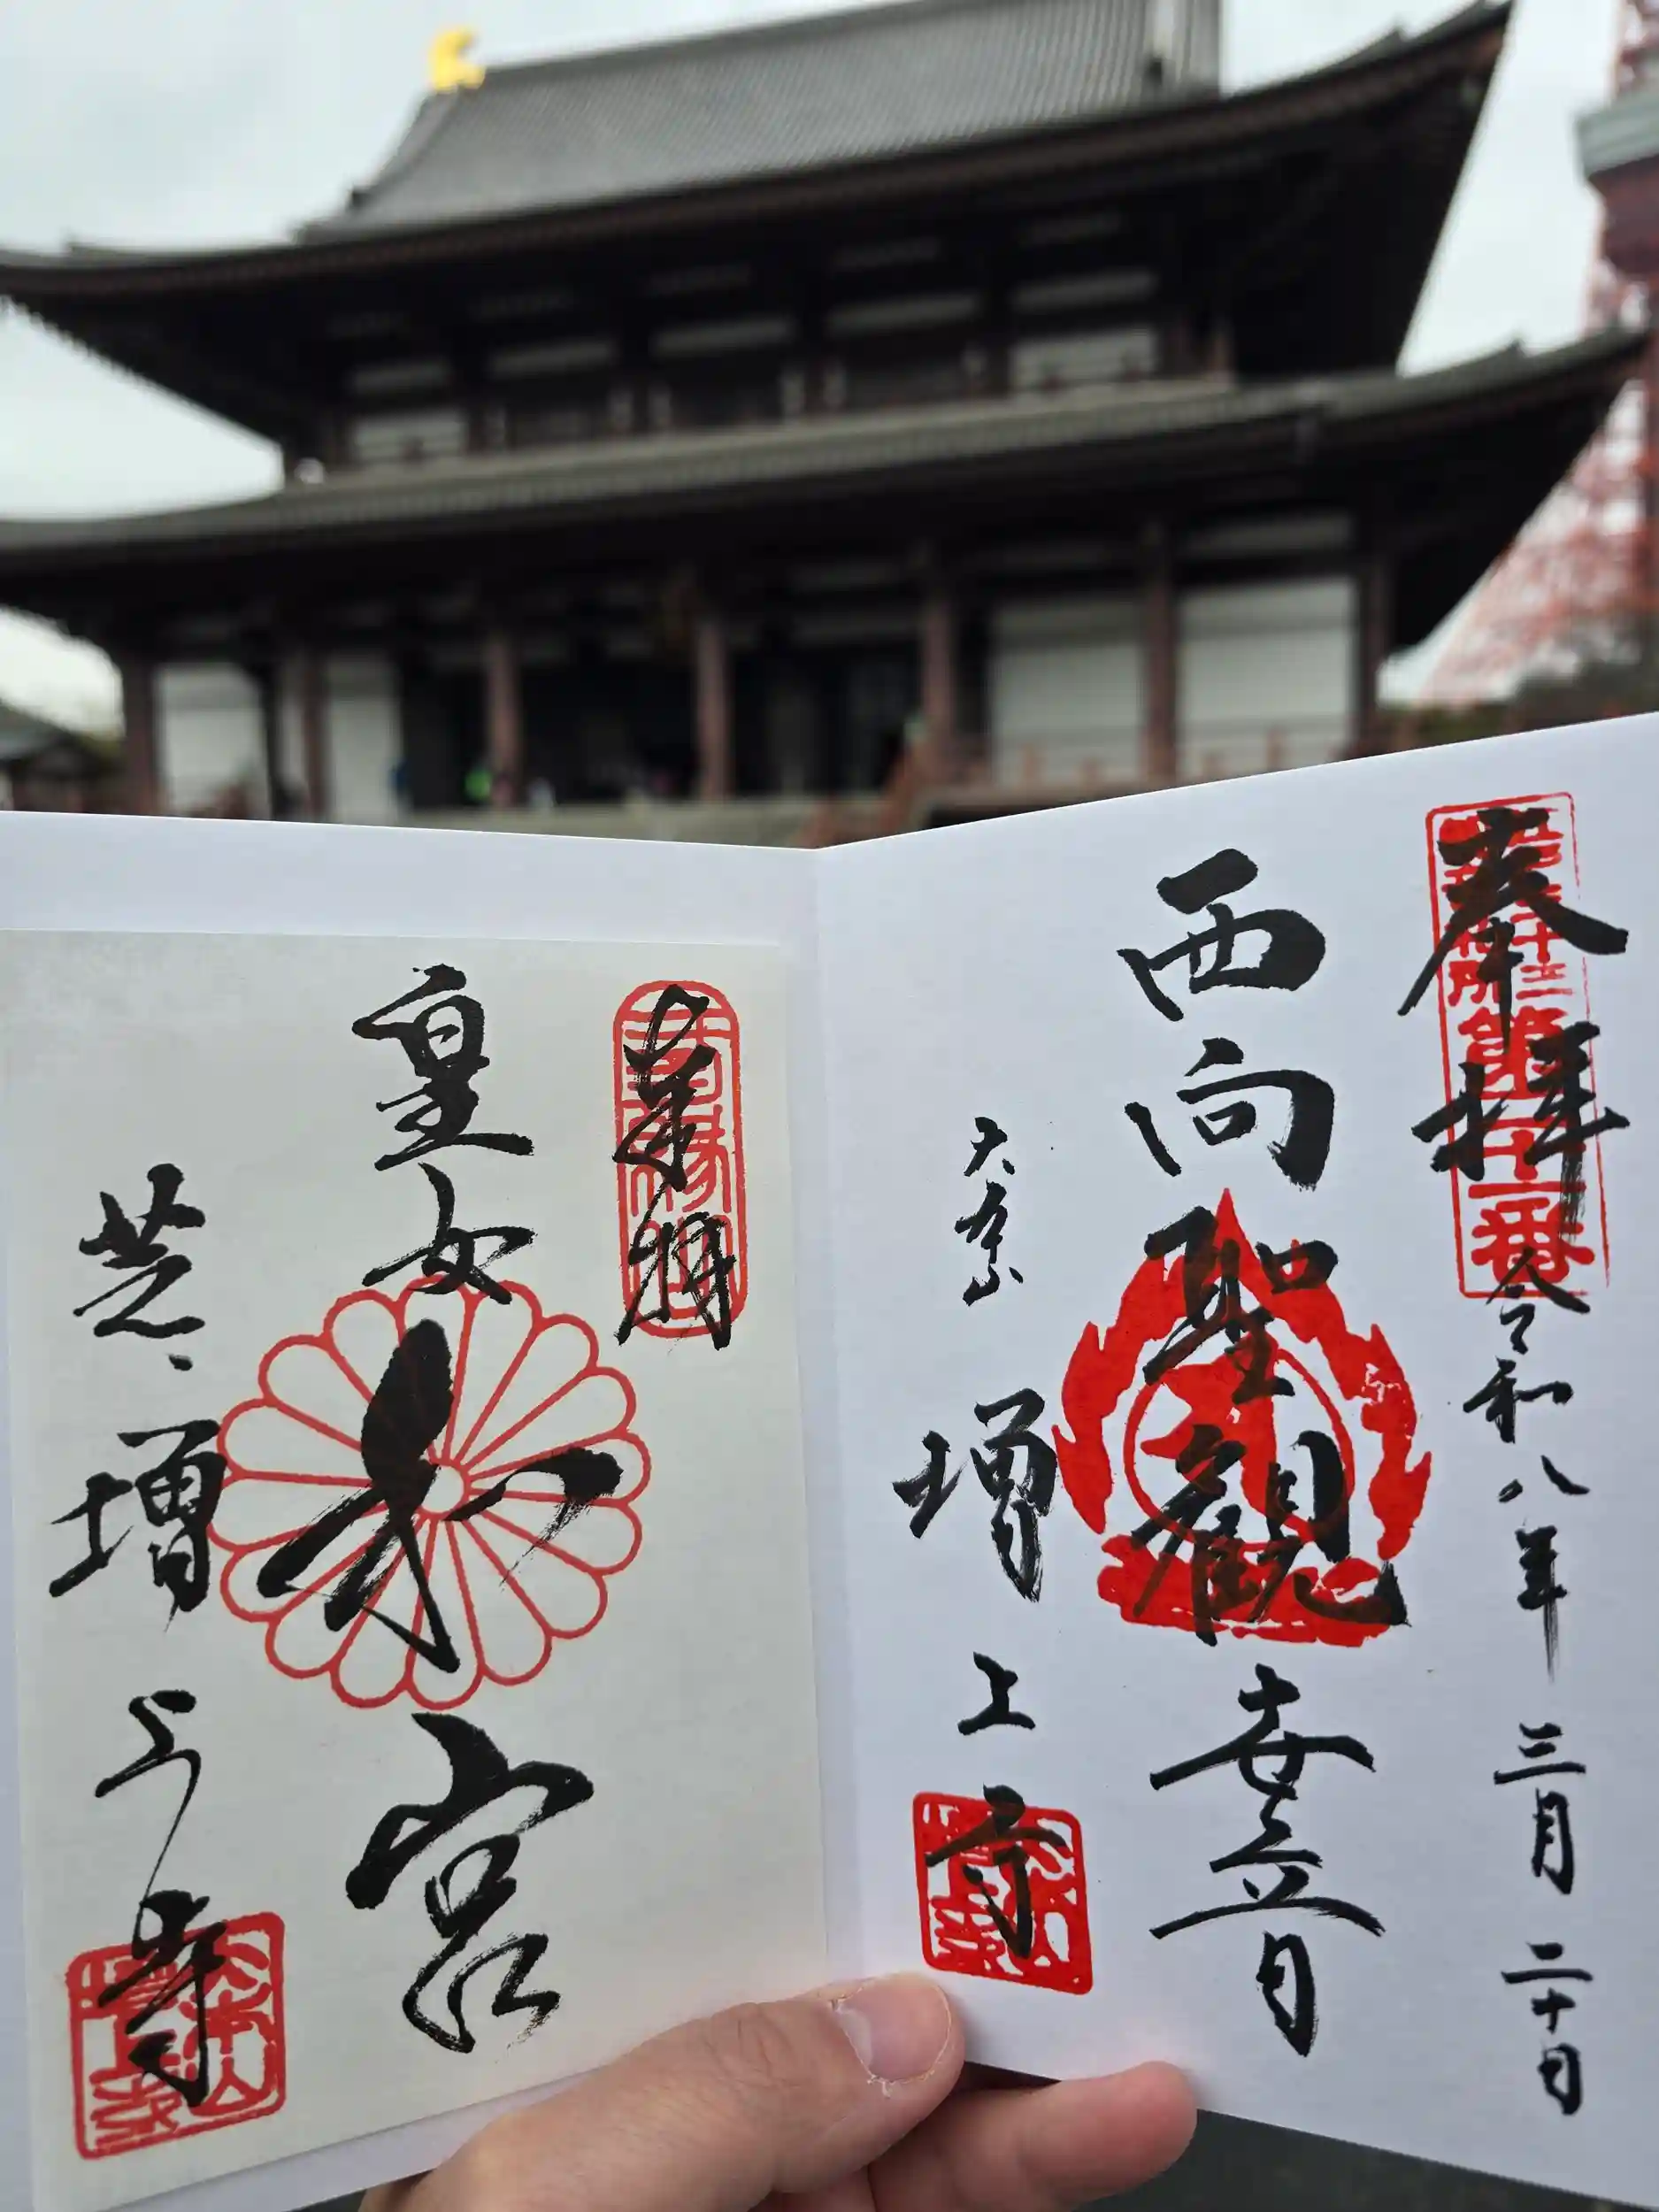 奉拝
令和八年三月二十日
西向聖観世音
大本山
増上寺
奉拝
皇女和宮
芝、増上寺